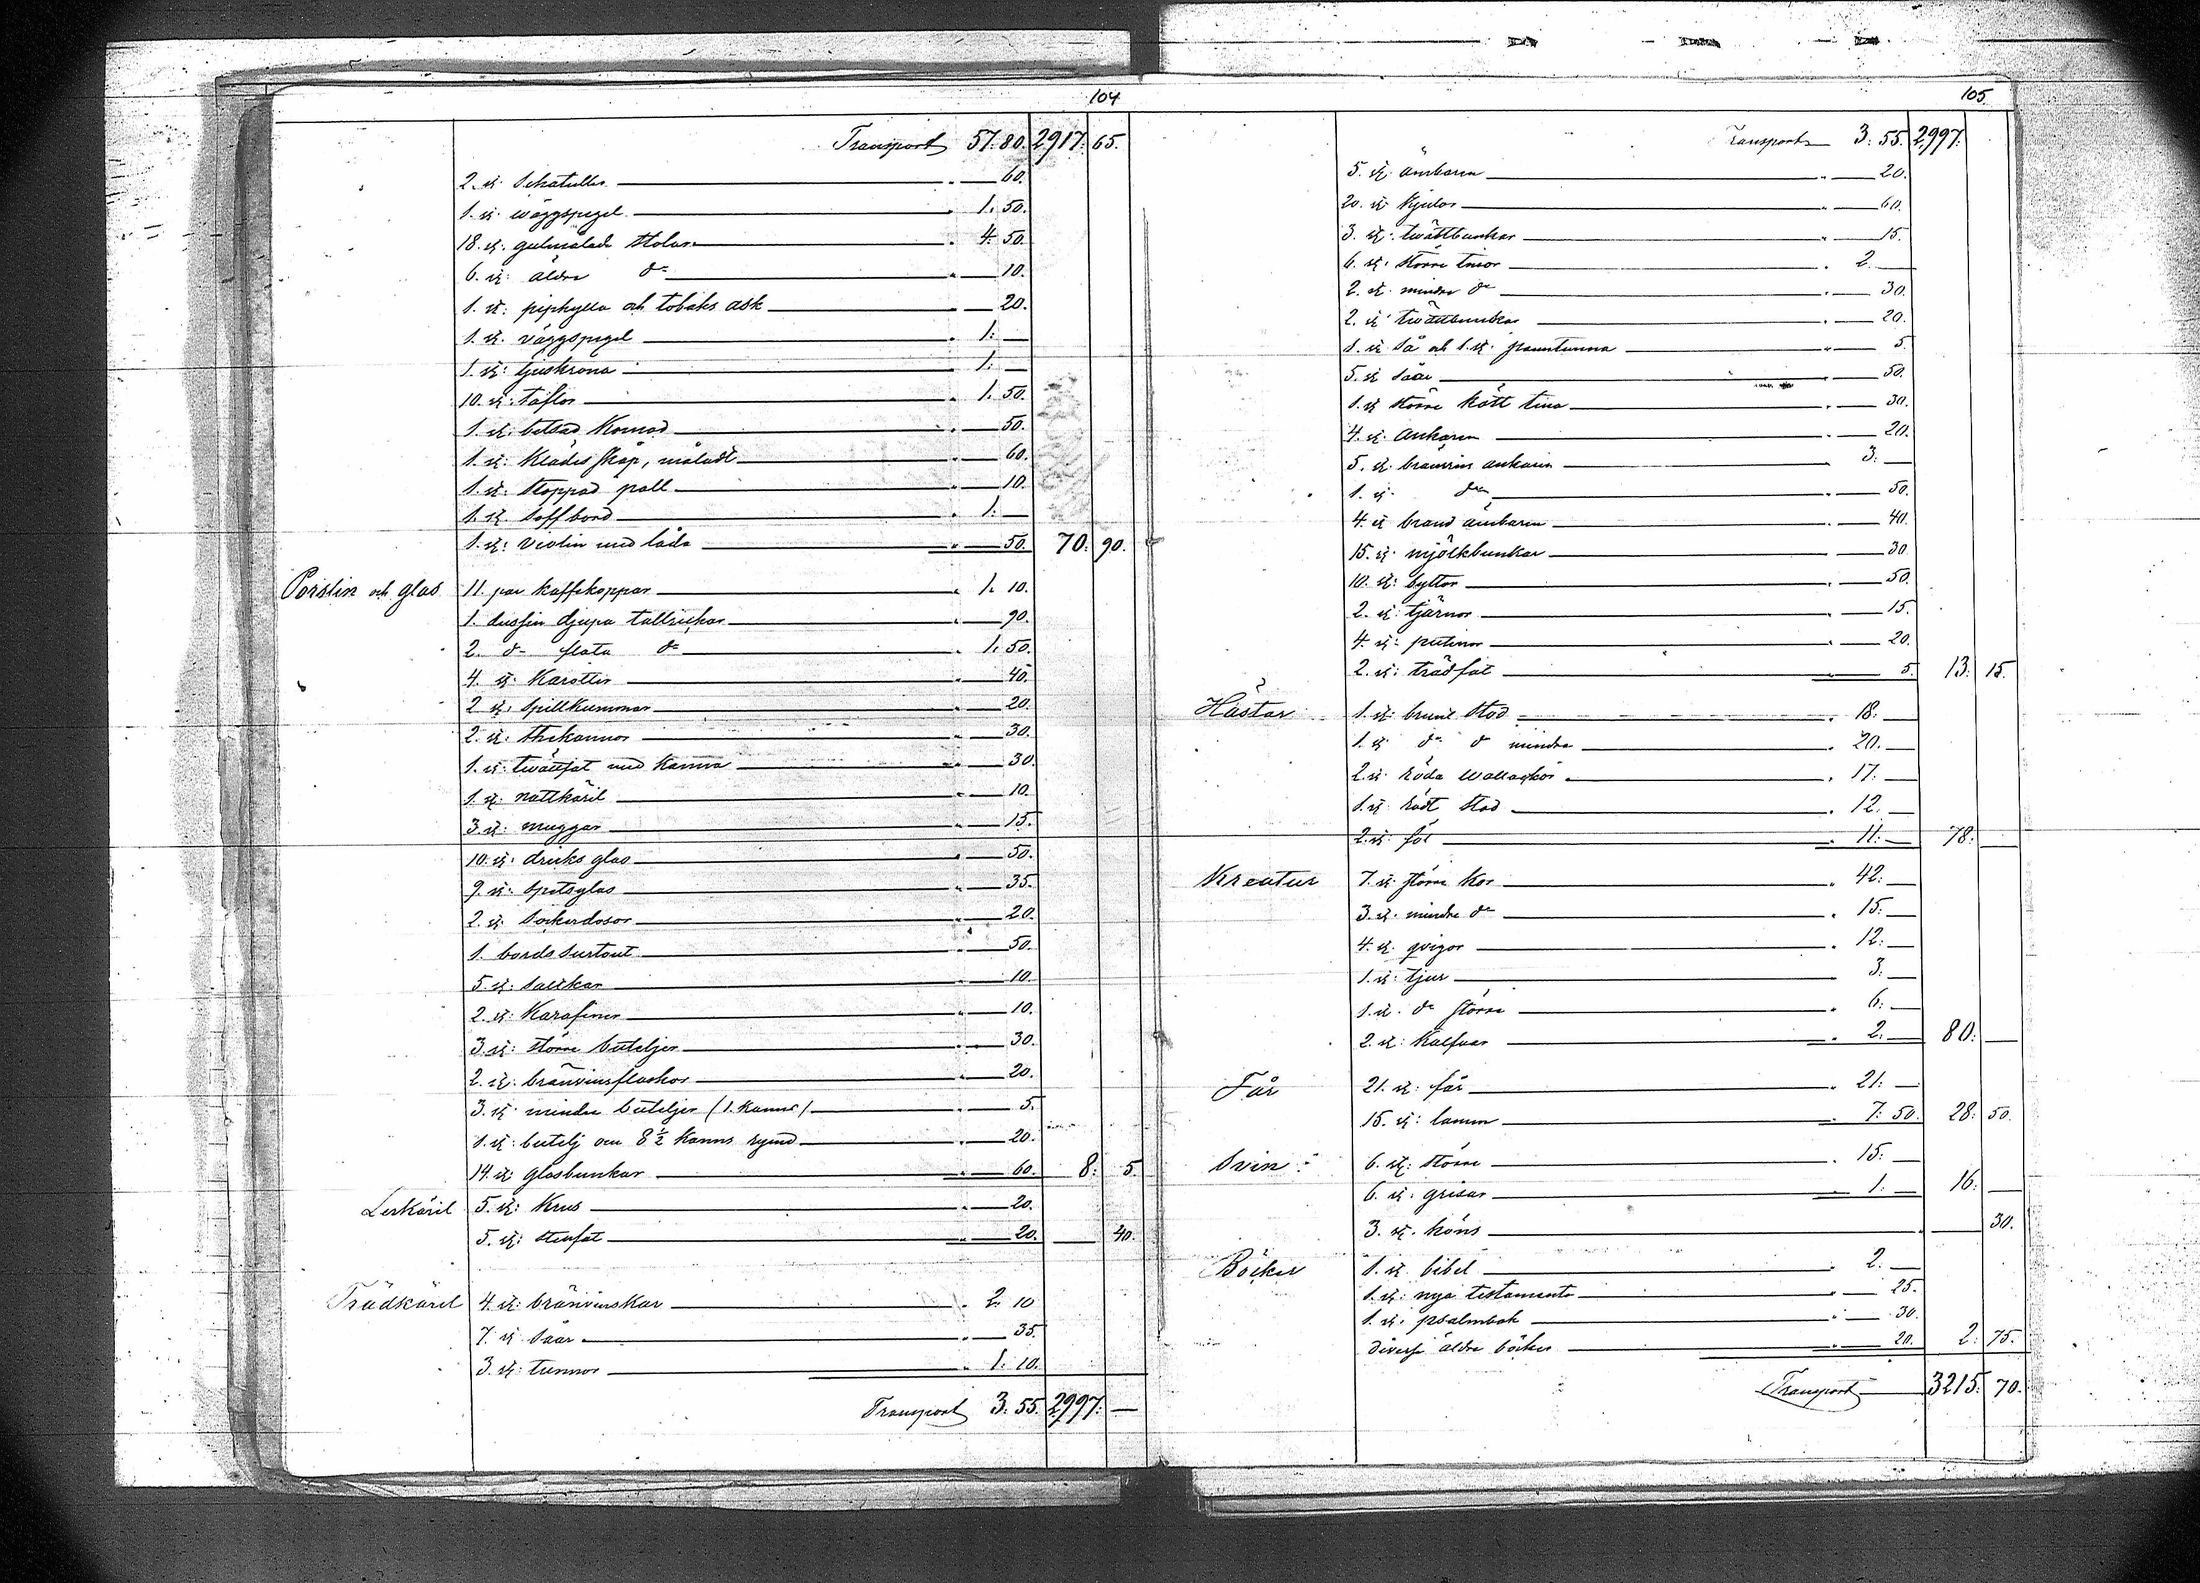 104
Transport 57. 80. 2917. 65.
2. st. Schatuller " 60.
1. st. wäggspegel " 1. 50.
18. st. gulmålade stolar " 4. 50.
6. st. äldre do " 10.
1. st. piphylla och tobaks ask " 20.
1. st. väggspegel " 1. —
1. st. ljuskrona " 1. —
10. st. taflor " 1. 50.
1. st. betsad Komod " 50.
1. st. Klädes skåp, måladt " 60.
1. st. stoppad pall " 10.
1. st. soffbord " 1. —
1. st. violin med låda " 50. 70. 90.
Porslin och glas 11. par kaffekoppar " 1. 10.
1. dussin djupa tallrickar " 90.
2. do flata do " 1. 50.
4. st. Karotter " 40.
2 st. spillkummar " 20.
2. st. thekannor " 30.
1. st. twättfat med Kanna " 30.
1. st. nattkäril " 10.
3. st. muggar " 15.
10. st. dricks glas " 50.
9. st. spetsglas " 35.
2. st. Sockerdosor " 20.
1. bords surtout " 50.
5. st. saltkar " 10.
2. st. Karafiner " 10.
3. st. större buteljer " 30.
2. st. bränvinsflaskor " 20.
3. st. mindre buteljer (1. kanns) " 5.
1. st. butelj om 8 1/2 kanns rymd " 20.
14. st. glasbunkar " 60. 8. 5.
Lerkäril 5. st. Krus " 20.
5. st. stenfat " 20. — 40.
Trädkäril 4. st. bränvinskar " 2. 10
7. st. såar " 35.
3. st. tunnor " 1. 10.
Transport 3. 55. 2997. —
105.
Transport 3. 55. 2997.
5. st. ämbaren " 20.
20. st. Kjulor " 60.
3. st. twättbunkar " 15.
6. st. större tinor " 2. —
2. st. mindre do " 30.
2. st. twättbunkar " 20.
1. st. så och 1. st. tunna " 5.
5. st. såar " 50.
1. st. större kött tina " 30.
4. st. ankaren " 20.
5. st. bränvins ankaren " 3. —
1. st. do " 50.
4. st. brand ämbaren " 40.
15. st. mjölkbunkar " 30.
10. st. byttor " 50.
2. st. tjärnor " 15.
4. st. putinor " 20.
2. st. trädfat " 5. 13. 15.
Hästar 1. st. brunt stod " 18. —
1. st. do do mindre " 20. —
2. st. röda wallacker " 17. —
1. st. rödt stod " 12. —
2. st. föl " 11. — 78. —
Kreatur 7. st. större kor " 42. —
3. st. mindre do " 15. —
4. st. qvigor " 12. —
1. st. tjur " 3. —
1. st. do större " 6. —
2. st. Kalfvar " 2. — 80. —
Får 21. st. får " 21. —
15. st. lamm " 7. 50. 28. 50.
Svin 6. st. större " 15. —
6. st. grisar " 1. — 16. —
3. st. höns — 30.
Böcker 1. st. bibel " 2. —
1. st. nya testamente " 25.
1. st. psalmbok " 30.
diverse äldre böcker " 20. 2. 75.
Transport 3215. 70.